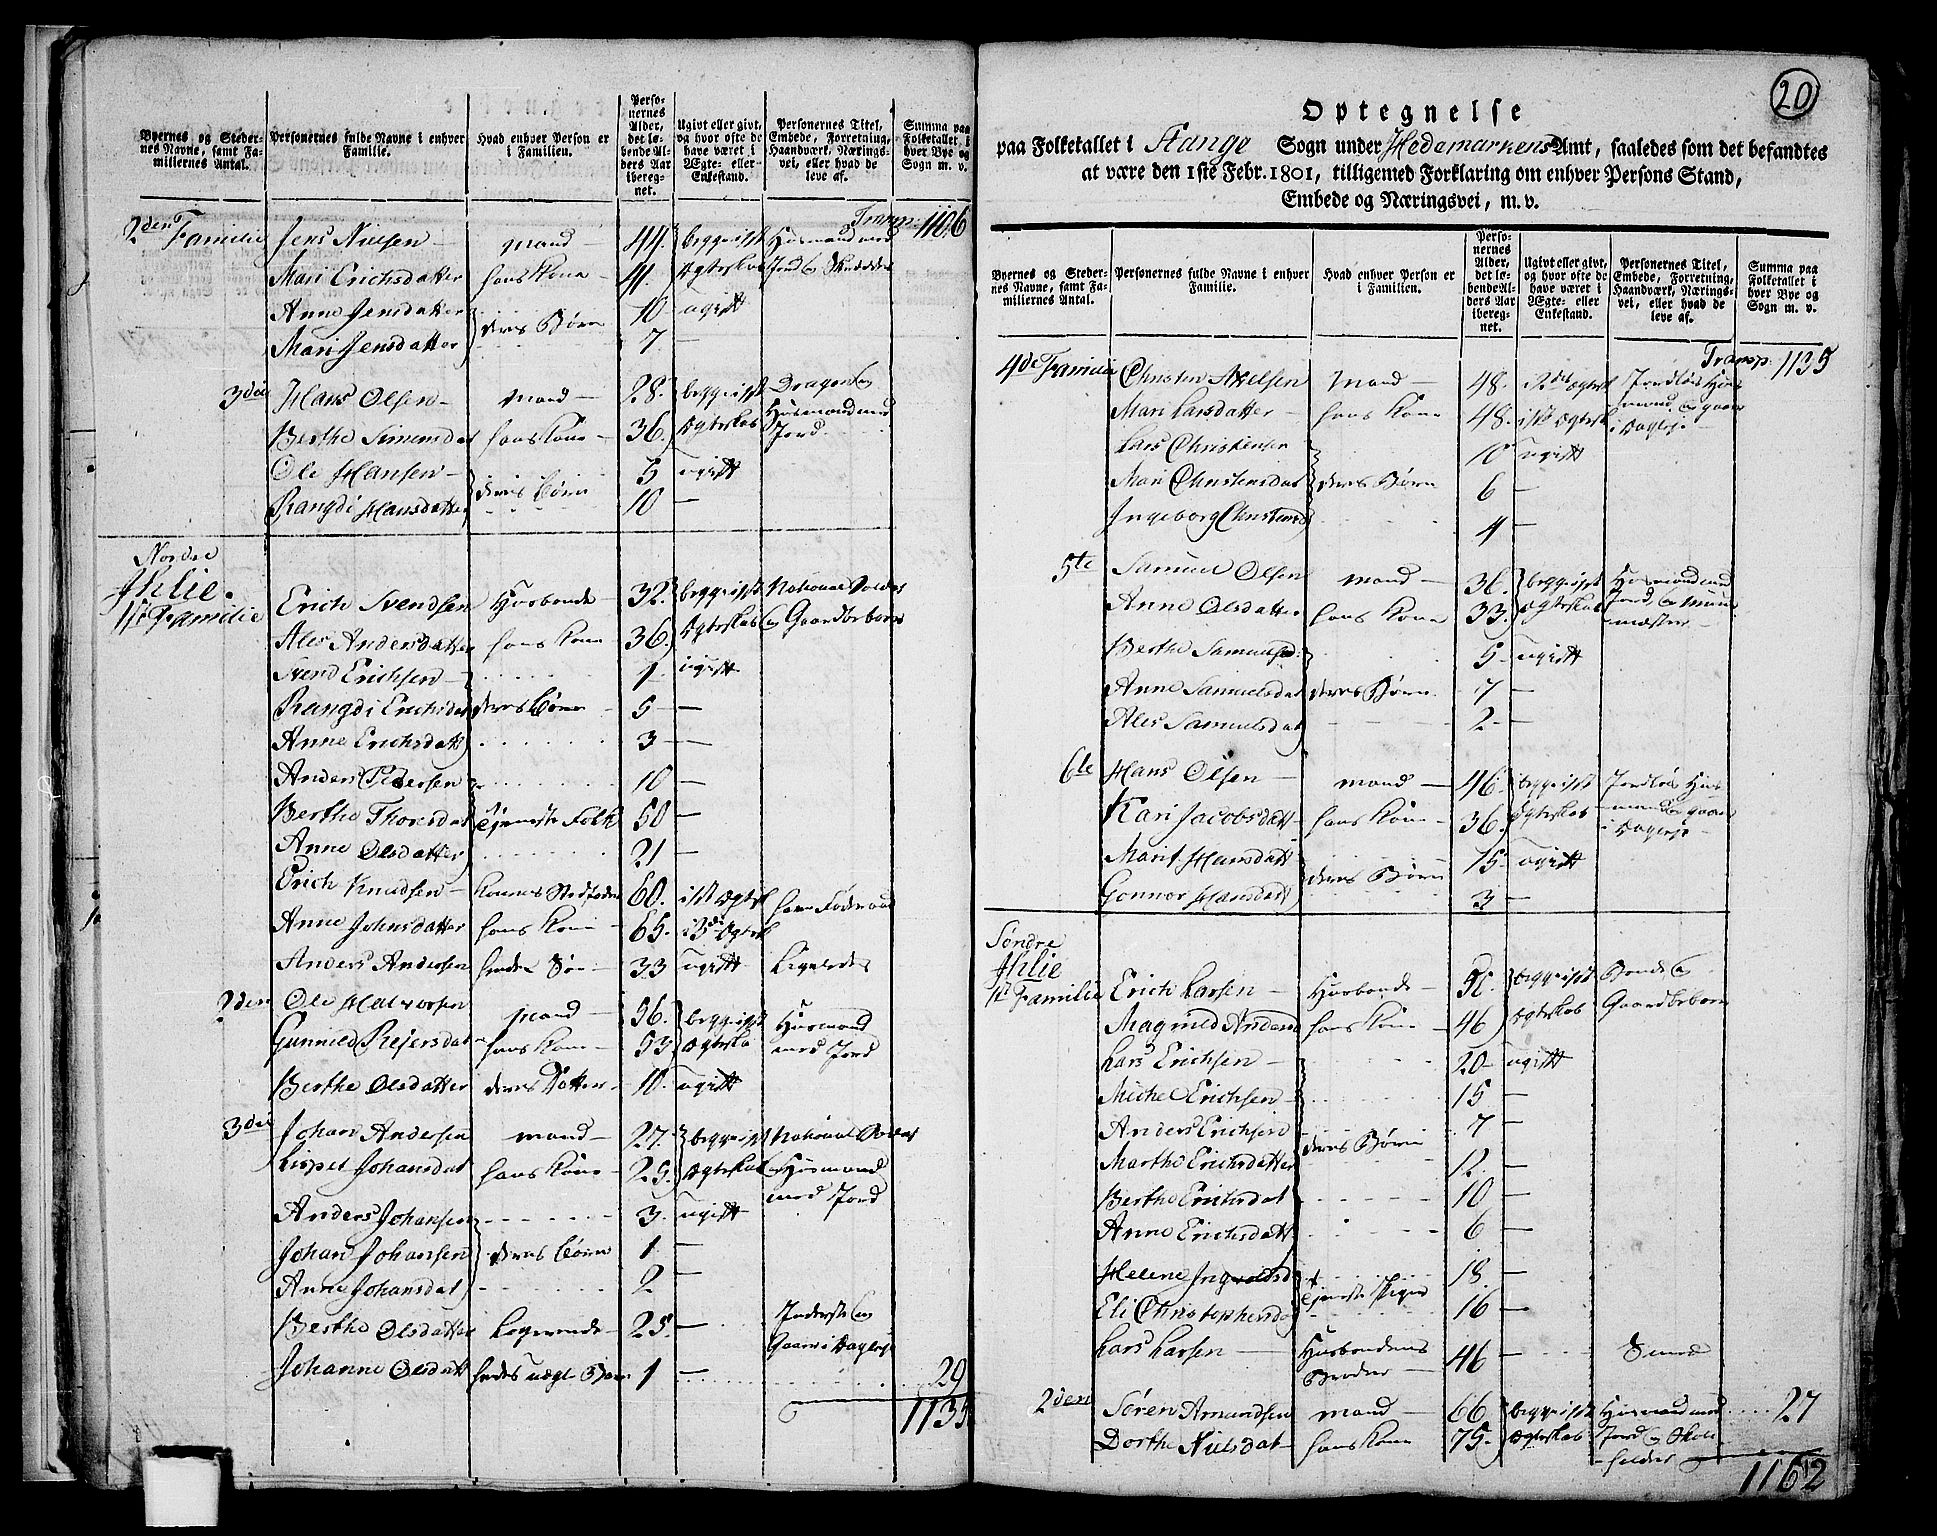 Byernes og Steder-
nes Navne, samt Fa-
miliernes Antal.
Personernes fulde Navne i enhver
Familie.
Hvad enhver Person er
i Familien.
Perso-
nernes
Alder,
det lø-
bende Al-
ders Aar
ibereg-
net.
Ugivt eller givt,
og hvor ofte de
have været i
Ægte- eller
Enkestand.
Personernes Titel,
Embede, Forretning,
Haandværk, Nærings-
vei, eller hvad de
leve af.
Summa paa
Folketallet i
hver Bye og
Sogn m. v.
Transp. 1106
2den Familie Jens Nielsen mand 44 begge i 1st Huusmand med
Mari Erichsdatter hans Kone 41 Ægteskab Jord og Skrædder
Anne Jensdatter deres Børn 10 ugift
Mari Jensdatter 7 —
3die Hans Olsen mand 28 begge i 1st Dragon og
Berthe Simensdat hans Kone 36 Ægteskab Huusmand med Jord
Ole Hansen deres Børn 5 ugift
Rangdi Hansdatter 10 —
Nordre
Ihlie.
1ste Familie Erich Svendsen Husbonde 32 begge i 1st National Soldat
Ales Andersdatter hans Kone 36 Ægteskab og Gaardbeboer
Svend Erichsen 1 ugift
Rangdi Erichsdat deres Børn 5 —
Anne Erichsdatt 3 —
Anders Pedersen 10 —
Berthe Thoresdat Tjeneste Folk 50 —
Anne Olsdatter 21 —
Erich Knudsen Konens Stedfader 60 i 1st Ægtesk have Føderaad
Anne Johnsdatter hans Kone 65 i 3die Ægtesk
Anders Andersen hendes Søn 33 ugift Ligeledes
2den Ole Halvorsen mand 56 begge i 1st Huusmand
Gunnild Rejersdat hans Kone 53 Ægteska med Jord
Berthe Olsdatter deres Datter 10 ugift
3die Johan Andersen mand 27 begge i 1st National Soldat
Lispet Johansdat hans Kone 25 Ægteskab og Huusmand
med Jord
Anders Johansen 3 ugift
Johan Johansen deres Børn 1 —
Anne Johansdat 2 —
Berthe Olsdatter Logerende 25 — Inderste og
Gaaer i Dagleje
Johanne Olsdatt hendes uægte Barn 1 — 29
1135
20
Optegnelse
paa Folketallet i Stange Sogn under Hedemarkens Amt, saaledes som det befandtes
at være den 1ste Febr. 1801, tilligemed Forklaring om enhver Persons Stand,
Embede og Næringsvei, m. v.
Byernes og Steder-
nes Navne, samt Fa-
miliernes Antal.
Personernes fulde Navne i enhver
Familie.
Hvad enhver Person er
i Familien.
Perso-
nernes
Alder,
det lø-
bende Al-
ders Aar
iberegn-
net.
Ugivt eller givt,
og hvor ofte de
have været i
Ægte- eller
Enkestand.
Personernes Titel,
Embede, Forretning,
Haandværk, Nærings-
vei, eller hvad de
leve af.
Summa paa
Folketallet i
hver Bye og
Sogn m. v.
Transp. 1135
4de Familie Christen Axelsen Mand 48 i 2det Ægtesk Jordløs Huus
Mari Larsdatter hans Kone 48 i 1st Ægtesk mand og gaaer
i Dagleje
Lars Christensen 10 ugift
Mari Christensdat deres Børn 6 —
Ingeborg Christensd 4 —
5te Samuel Olsen mand 36 begge i 1st Huusmand med
Anne Olsdatter hans Kone 33 Ægteskab Jord, og Muur
mæster
Berthe Samuelsd: 5 ugift
Anne Samuelsdat deres Børn 7 —
Ales Samuelsdat 2 —
6te Hans Olsen mand 46 begge i 1st Jordløs Huus
Kari Jacobsdatt hans Kone 36 Ægteskab mand og gaaer
i Dagleje
Marit Hansdatt deres Børn 15 ugift
Gonnor Hansdatt 3 —
Søndre
Ihlie
1st Familie Erich Larsen Husbonde 51 begge i 1st Bonde og
Magnild Andersd hans Kone 46 Ægteskab Gaardbeboer
Lars Erichsen 20 ugift
Michel Erichsen 15 —
Anders Erichsen 7 —
Marthe Erichsdatter deres Børn 12 —
Berthe Erichsdat 10 —
Anne Erichsdatt 6 —
Helene Ingvoldsd 18 —
Eli Christophersdat Tjeneste Piger 16 —
Lars Larsen Husbondens
Broder 46 Smed
2den Søren Amundsen mand 66 begge i 1st Huusmand med 27
Dorthe Nielsdat hans Kone 75 Ægteskab Jord og Skole
holder
1162